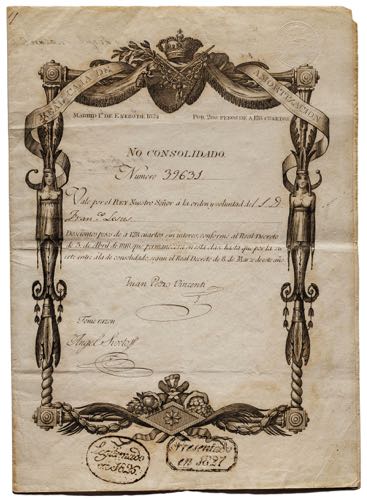 REAL CAXA DE AMORTIZACION
MADRID 1º DE ENERO DE 1824 POR 200 PESOS DE A 128 CUARTOS
NO CONSOLIDADO.
Numero 39631
Vale por el REY Nuestro Señor à la orden y voluntad del S. D.
Franco.
Doscientos pesos de a 128 cuartos sin interes, conforme al Real Decreto
de 5 de Abril 1818, que permanecerá en esta clase hasta que por la su
erte entre á la de consolidado, segun el Real Decreto de 8 de Marzo de este año.
Juan Pedro Vincenti
Tome razon
Angel
en 1825
Presentado
en 1827